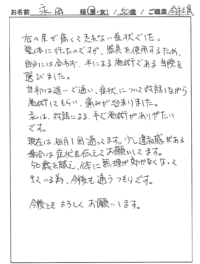 お名前 永田 様(男・女) / 50歳 / ご職業 会社員
右の肩が痛くてきれない症状でした。
整体に行ったのですが、器具を使用するため、
自分には合わず、手による施術である当院を
選びました。
当初は週一で通い、症状について対話しながら
施術してもらい、痛みが治まりました。
私は、対話による、手で施術がありがたい
です。
現在は、毎月1回通ってます。少し違和感がある
場合は症状を伝えてお願いしてます。
50歳を越え、体に無理が効かなくなって
きている為、今後も通うつもりです。
今後ともよろしくお願いします。